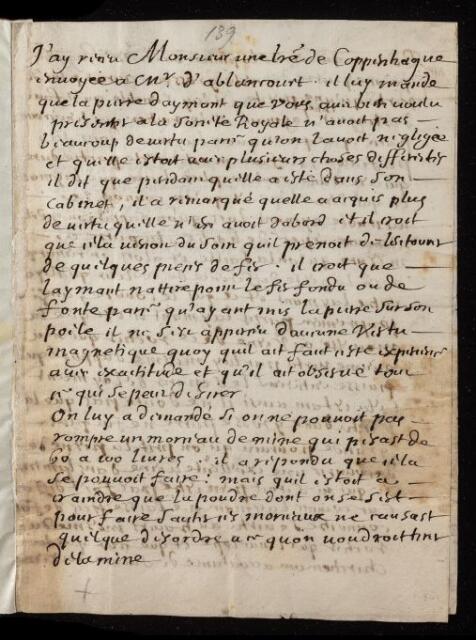 139
J'ay reçu Monsieur une lre de Coppenhague
envoyée a Mr d'ablancourt. il luy mande
que la pierre daymant que vous aviez bien voulu
presenter a la Societe Royale n'avoit pas
beaucoup de vertu parce qu'on lavoit negligée
et quelle estoit avec plusieurs choses differentes
il dit que pendant quelle a esté dans son
Cabinet, il a remarqué quelle a acquis plus
de vertu quelle n'en avoit dabord et il croit
que cela venoit du soin quil prenoit de
de quelques pieces de fer. il croit que
laymant nattire point le fer fondu ou de
fonte parce qu'ayant mis la pierre sur son
poile il ne s'est apperçu daucune vertu
magnetique quoy quil ait fait cette experience
avec exactitude et qu'il ait observé tout
ce qui se peut desirer
On luy a demandé si on ne pouvoit pas
rompre un morceau de mine qui pesast de
60 a 100 livres. il a repondu que cela
se pouvoit faire: mais quil estoit a
craindre que la poudre dont on se sert
pour faire sauter ces morceaux ne causast
quelque desordre a ce quon voudroit tirer
de la mine